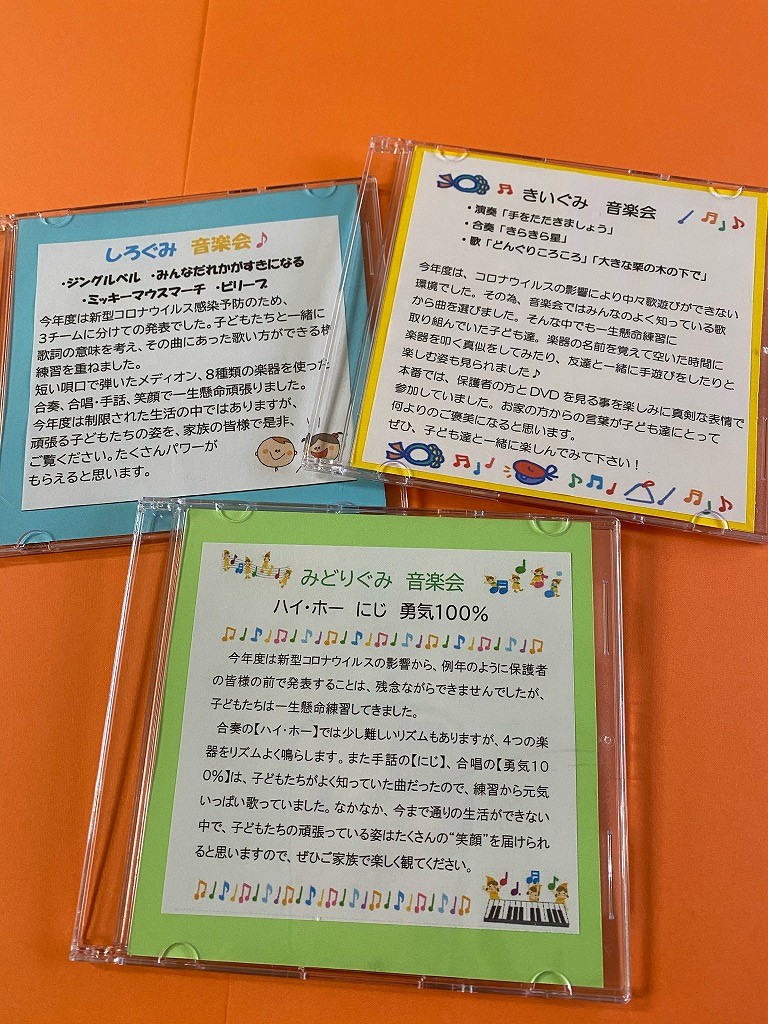 しろぐみ 音楽会♪
・ジングルベル ・みんなだれかがすきになる
・ミッキーマウスマーチ ・ビリーブ
今年度は新型コロナウイルス感染予防のため、
3チームに分けての発表でした。子どもたちと一緒に
歌詞の意味を考え、その曲にあった歌い方ができる様
練習を重ねました。
短い唄口で弾いたメディオン、8種類の楽器を使った
合奏、合唱・手話、笑顔で一生懸命頑張りました。
今年度は制限された生活の中ではありますが、
頑張る子どもたちの姿を、家族の皆様で是非、
ご覧ください。たくさんパワーが
もらえると思います。
きいぐみ 音楽会
・演奏「手をたたきましょう」
・合奏「きらきら星」
・歌「どんぐりころころ」「大きな栗の木の下で」
今年度は、コロナウイルスの影響により中々歌遊びができない
環境でした。その為、音楽会ではみんなのよく知っている歌
から曲を選びました。そんな中でも一生懸命練習に
取り組んでいた子ども達。楽器の名前を覚えて空いた時間に
楽器を叩く真似をしてみたり、友達と一緒に手遊びをしたりと
楽しむ姿も見られました♪
本番では、保護者の方とDVDを見る事を楽しみに真剣な表情で
参加していました。お家の方からの言葉が子ども達にとって
何よりのご褒美になると思います。
ぜひ、子ども達と一緒に楽しんでみて下さい！
みどりぐみ 音楽会
ハイ・ホー にじ 勇気100%
今年度は新型コロナウイルスの影響から、例年のように保護者
の皆様の前で発表することは、残念ながらできませんでしたが、
子どもたちは一生懸命練習してきました。
合奏の【ハイ・ホー】では少し難しいリズムもありますが、4つの楽
器をリズムよく鳴らします。また手話の【にじ】、合唱の【勇気10
0%】は、子どもたちがよく知っていた曲だったので、練習から元気
いっぱい歌っていました。なかなか、今まで通りの生活ができない
中で、子どもたちの頑張っている姿はたくさんの“笑顔”を届けられ
ると思いますので、ぜひご家族で楽しく観てください。